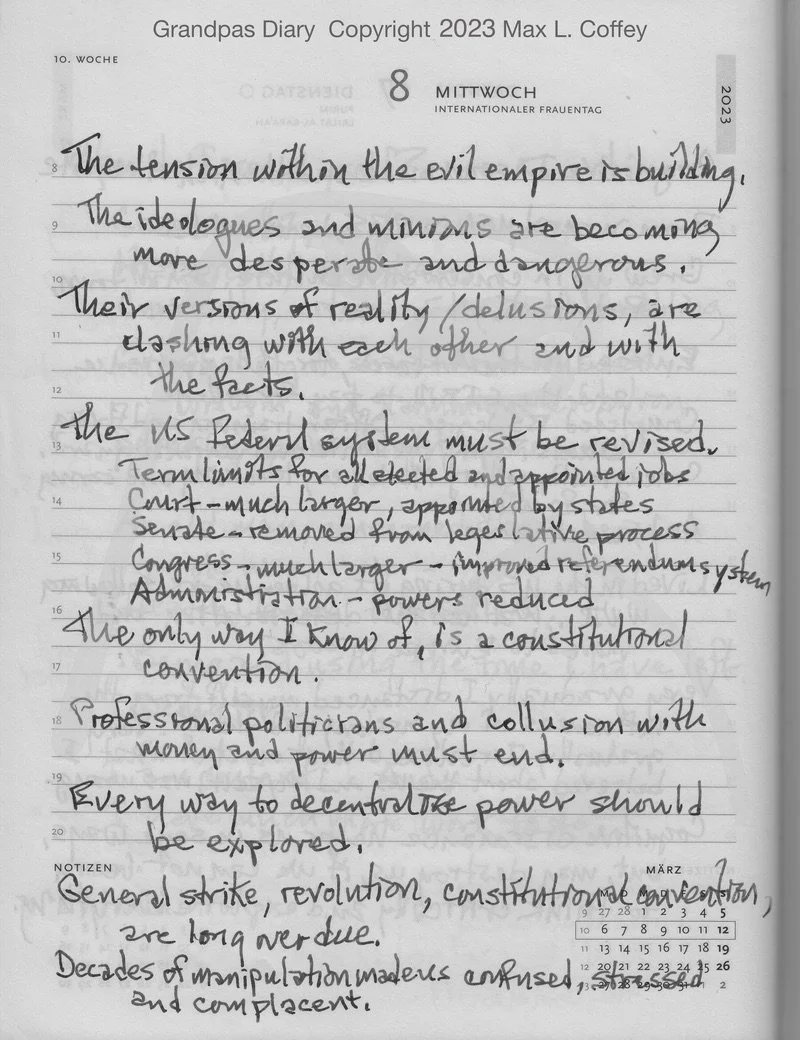 Grandpas Diary Copyright 2023 Max L. Coffey
10. WOCHE
8 MITTWOCH
INTERNATIONALER FRAUENTAG
2023
8 The tension within the evil empire is building.
9 The ideologues and minions are becoming
more desperate and dangerous.
10
Their versions of reality/delusions, are
11 clashing with each other and with
the facts.
12
The US federal system must be revised.
13
Term limits for all elected and appointed jobs
14 Court - much larger, appointed by states
Senate - removed from legeslative process
15 Congress - much larger - improved referendum system
Administration - powers reduced
16
The only way I know of, is a constitutional
17 convention.
18 Professional politicians and collusion with
money and power must end.
19
Every way to decentralize power should
20 be explored.
NOTIZEN
MÄRZ
General strike, revolution, constitutional convention,
9 27 28 1 2 3 4 5
are long over due.
10 6 7 8 9 10 11 12
11 13 14 15 16 17 18 19
Decades of manipulation made us confused, stressed
12 20 21 22 23 24 25 26
13 27 28 29 30 31 1 2
and complacent.